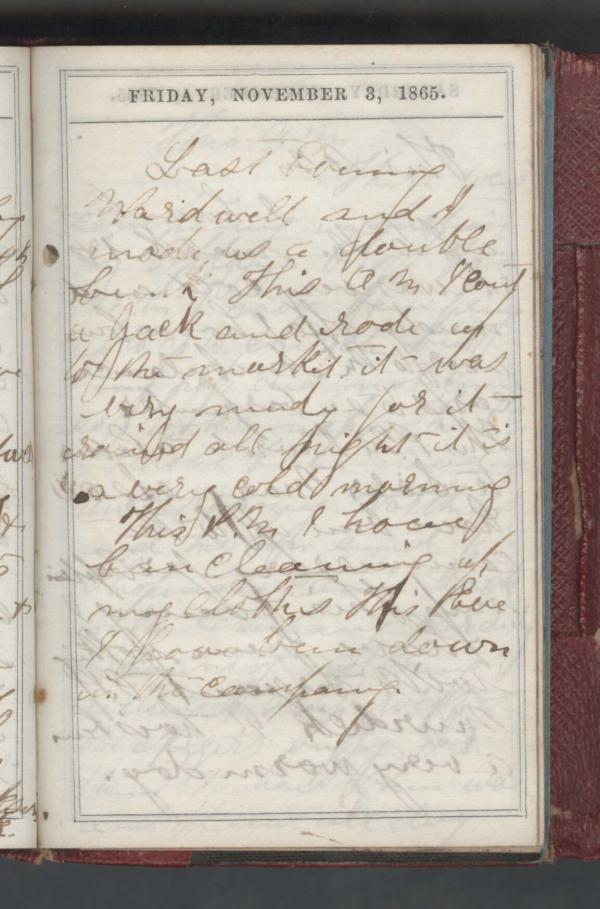 FRIDAY, NOVEMBER 3, 1865.
Last Evening
Wardwell and I
made us a double
bunk This A M I cout
a Jack and rode up
to the markit it was
very mudy for it
rained all night it is
a very cold morning
This P.M I have
ben cleaning up
my cloths This Eve
I have ben down
in the company.